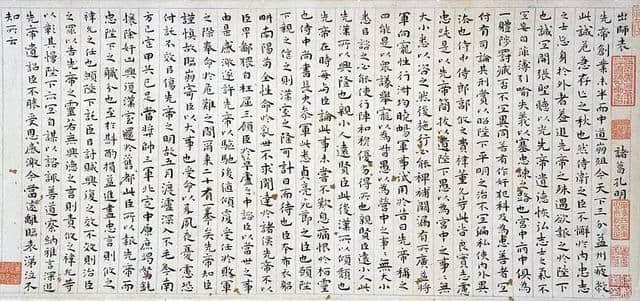 出師表 諸葛孔明
先帝創業未半而中道崩殂今天下三分益州疲敝
此誠危急存亡之秋也然侍衛之臣不懈於內忠志
之士忘身於外者蓋追先帝之殊遇欲報之於陛下
也誠宜開張聖聽以光先帝遺德恢弘志士之氣不
宜妄自菲薄引喻失義以塞忠諫之路也宮中府中俱為
一體陟罰臧否不宜異同若有作奸犯科及為忠善者宜
付有司論其刑賞以昭陛下平明之治不宜偏私使內外異
法也侍中侍郎郭攸之費禕董允等此皆良實志慮
忠純是以先帝簡拔以遺陛下愚以為宮中之事事無
大小悉以咨之然後施行必能裨補闕漏有所廣益將
軍向寵性行淑均曉暢軍事試用於昔日先帝稱之
曰能是以眾議舉寵為督愚以為營中之事事無大小
悉以咨之必能使行陣和穆優劣得所也親賢臣遠小人此
先漢所以興隆也親小人遠賢臣此後漢所以傾頹也
先帝在時每與臣論此事未嘗不歎息痛恨於桓靈
也侍中尚書長史參軍此悉貞亮死節之臣也願陛
下親之信之則漢室之隆可計日而待也臣本布衣躬
耕南陽苟全性命於亂世不求聞達於諸侯先帝不以
臣卑鄙猥自枉屈三顧臣於草廬之中諮臣以當世之事
由是感激遂許先帝以驅馳後值傾覆受任於敗軍
之際奉命於危難之間爾來二十有一年矣先帝知臣
謹慎故臨崩寄臣以大事也受命以來夙夜憂懼恐
付託不效以傷先帝之明故五月渡瀘深入不毛今南
方已定甲兵已足當獎帥三軍北定中原庶竭駑鈍
攘除奸凶興復漢室還於舊都此臣所以報先帝而
忠陛下之職分也至於斟酌損益進盡忠言則攸之
禕允之任也願陛下託臣以討賊興復之效不效則治臣
之罪以告先帝之靈若無興德之言則責攸之禕允等
之咎以彰其慢陛下亦宜自課以諮諏善道察納雅言深追
先帝遺詔臣不勝受恩感激今當遠離臨表涕泣不
知所云